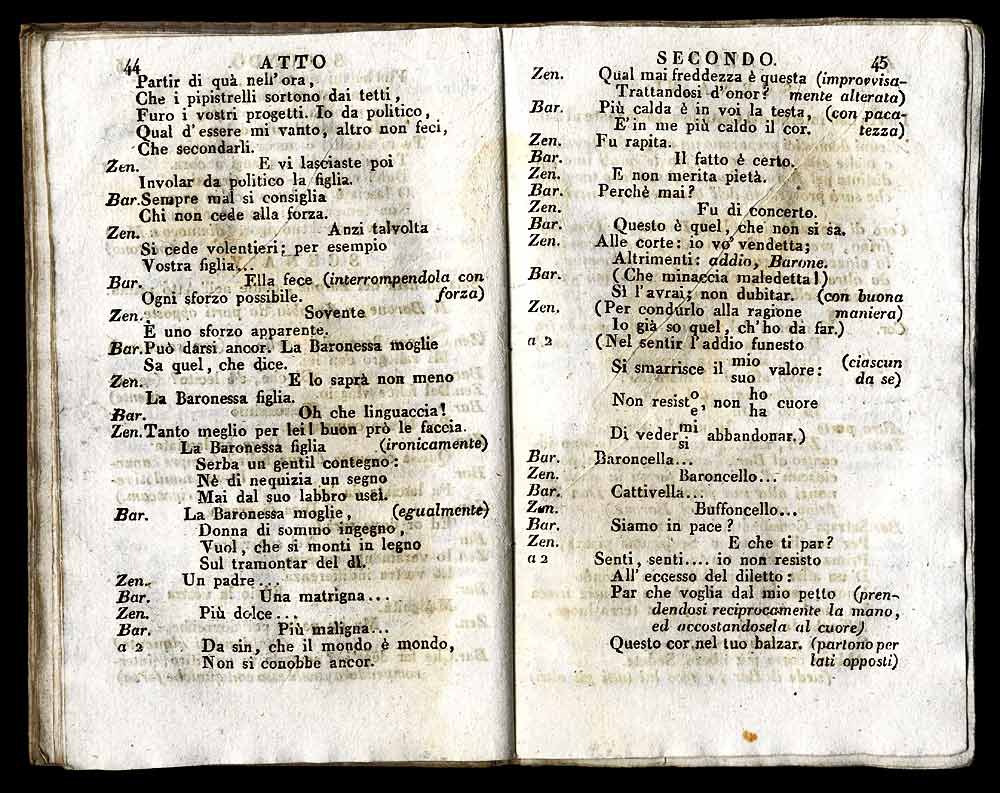 44 ATTO
Partir di quà nell'ora,
Che i pipistrelli sortono dai tetti,
Furo i vostri progetti. Io da politico,
Qual d'essere mi vanto, altro non feci,
Che secondarli.
Zen. E vi lasciaste poi
Involar da politico la figlia.
Bar. Sempre mal si consiglia
Chi non cede alla forza.
Zen. Anzi talvolta
Si cede volentieri; per esempio
Vostra figlia...
Bar. Ella fece (interrompendola con
Ogni sforzo possibile. forza)
Zen. Sovente
È uno sforzo apparente.
Bar. Può darsi ancor. La Baronessa moglie
Sa quel, che dice.
Zen. E lo saprà non meno
La Baronessa figlia.
Bar. Oh che linguaccia!
Zen. Tanto meglio per lei! buon prò le faccia.
La Baronessa figlia (ironicamente)
Serba un gentil contegno:
Nè di nequizia un segno
Mai dal suo labbro uscì.
Bar. La Baronessa moglie, (egualmente)
Donna di sommo ingegno,
Vuol, che si monti in legno
Sul tramontar del dì.
Zen. Un padre...
Bar. Una matrigna...
Zen. Più dolce...
Bar. Più maligna...
a 2 Da sin, che il mondo è mondo,
Non si conobbe ancor.
SECONDO. 45
Zen. Qual mai freddezza è questa (improvvisa-
Trattandosi d'onor? mente alterata)
Bar. Più calda è in voi la testa, (con paca-
E' in me più caldo il cor. tezza)
Zen. Fu rapita.
Bar. Il fatto è certo.
Zen. E non merita pietà.
Bar. Perchè mai?
Zen. Fu di concerto.
Bar. Questo è quel, che non si sa.
Zen. Alle corte: io vo' vendetta;
Altrimenti: addio, Barone.
Bar. (Che minaccia maledetta!)
Sì l'avrai; non dubitar. (con buona
Zen. (Per condurlo alla ragione maniera)
Io già so quel, ch'ho da far.)
a 2 (Nel sentir l'addio funesto
Si smarrisce il mio valore: (ciascun
suo da se)
Non resisto, non ho cuore
e ha
Di vedermi abbandonar.)
si
Bar. Baroncella...
Zen. Baroncello...
Bar. Cattivella...
Zen. Buffoncello...
Bar. Siamo in pace?
Zen. E che ti par?
a 2 Senti, senti.... io non resisto
All' eccesso del diletto:
Par che voglia dal mio petto (pren-
dendosi reciprocamente la mano,
ed accostandosela al cuore)
Questo cor nel tuo balzar. (partono per
lati opposti)